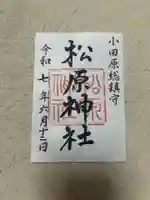 小田原総鎮守
松原神社
令和七年六月十二日